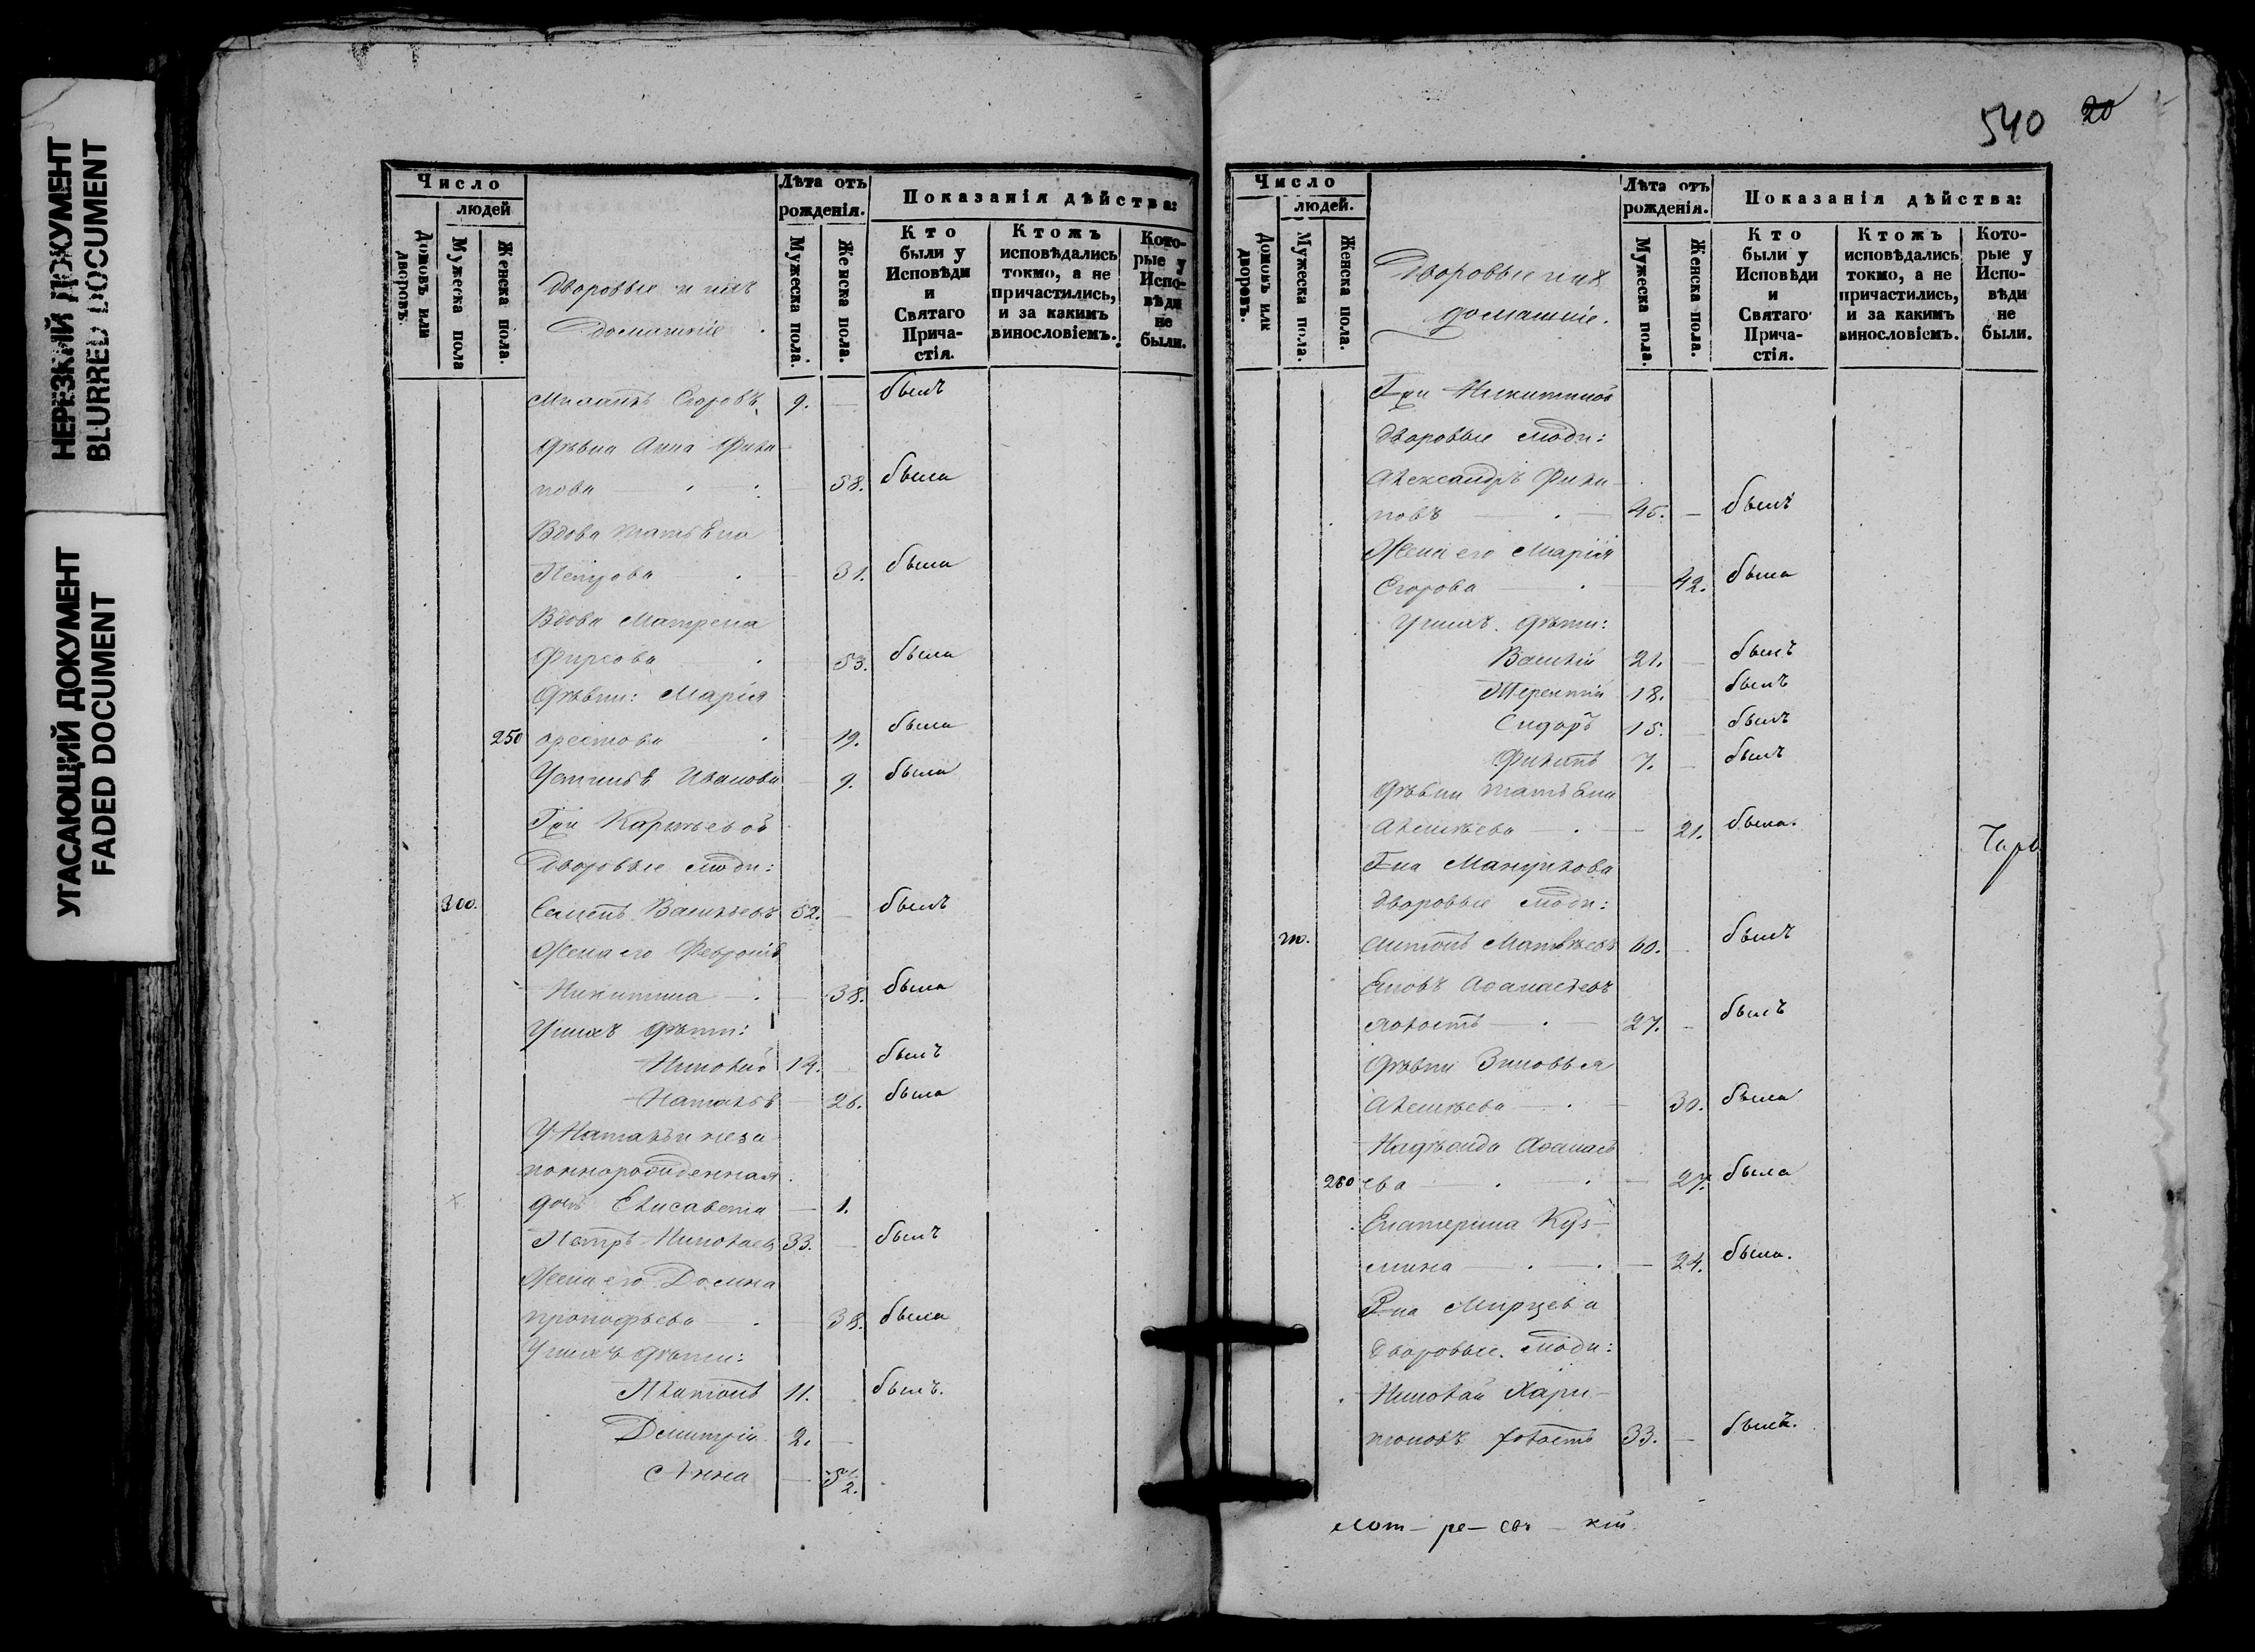 НЕРЕЗКИЙ ДОКУМЕНТ
BLURRED DOCUMENT
УГАСАЮЩИЙ ДОКУМЕНТ
FADED DOCUMENT
Число
людей
Домовъ или дворовъ.
Мужеска пола
Женска пола.
Дворовые и ихъ
домашніе.
Лѣта отъ
рожденія.
Мужеска пола.
Женска пола.
Показанія дѣйства:
Кто
были у
Исповѣди
и
Святаго
Прича-
стія.
Ктожъ
исповѣдались
токмо, а не
причастились,
и за какимъ
винословіемъ.
Кото-
рые у
Испо-
вѣди
не
были.
Егоровъ 9. — былъ
Дѣвка Анна Фили-
пова 58. была
Вдова Татьяна
Петрова 31. была
Вдова Матрена
Фирсова 53. была
Дѣвки: Марія
250 Орестова 19. была
Устинья Иванова 9. была
Дворовые люди:
300. Семенъ Васильевъ 52. былъ
Жена его Февронія
Никитина 38. была
У нихъ дѣти:
Николай 14. былъ
Наталья — 26. была
У Натальи неза-
коннорожденная
дочь Елисавета — 1.
Петръ Николаевъ 33. — былъ
Жена его Домна
Прокофьева 38. была
У нихъ дѣти:
Платонъ 11. былъ.
Димитрій 2. —
Анна —
540 20
Число
людей.
Домовъ или дворовъ.
Мужеска пола.
Женска пола.
Дворовые и ихъ
домашніе.
Лѣта отъ
рожденія.
Мужеска пола.
Женска пола.
Показанія дѣйства:
Кто
были у
Исповѣди
и
Святаго
Прича-
стія.
Ктожъ
исповѣдались
токмо, а не
причастились,
и за какимъ
винословіемъ.
Кото-
рые у
Испо-
вѣди
не
были.
Никитиной
дворовые люди:
Александръ Фили-
повъ 45. — былъ
Жена его Марія
Егорова 42. была
У нихъ дѣти:
Василій 21. былъ
Терентій 18. былъ
Сидоръ 15. былъ
Филипъ 7. былъ
Дѣвки Татьяна
Алексѣева 21. была.
дворовые люди:
Антонъ Матвѣевъ 60. былъ
Аѳанасьевъ
холостъ 27. былъ
Дѣвки Зиновья
Алексѣева 30. была
Надежда Аѳанась-
260 ева 27. была
Екатерина Кузь-
мина 24. была.
Дворовые люди:
Николай Хари-
тоновъ холостъ 33. — былъ.